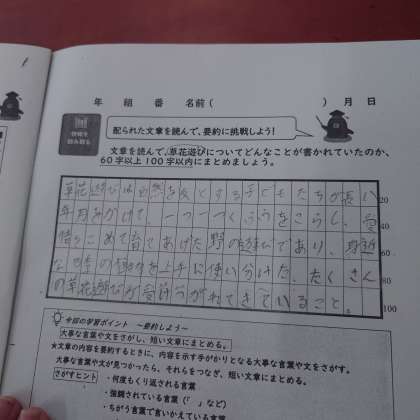 年 組 番 名前( ) 月 日
情報を
読み取る
配られた文章を読んで、要約に挑戦しよう!
文章を読んで、草花遊びについてどんなことが書かれていたのか、
60字以上100字以内にまとめましょう。
草花遊びは自然を友とする子どもたちが長い
年月をかけて、一つ一つくふうをこらし、愛
情をこめて育てあげた野の遊びであり、身近
な四季の草花を上手に使い分けた、たくさん
の草花遊びが受けつがれてきていること。
20
40
60
80
100
今回の学習ポイント ~要約しよう~
大事な言葉や文をさがし、短い文章にまとめる。
★文章の内容を要約するときに、内容を示す手がかりとなる大事な言葉や文をさがす。
大事な言葉や文が見つかったら、それらをつなぎ、短い文章にまとめる。
さがすヒント
・何度もくり返される言葉
・強調されている言葉(「 」など)
・ちがう言葉で言いかえている言葉